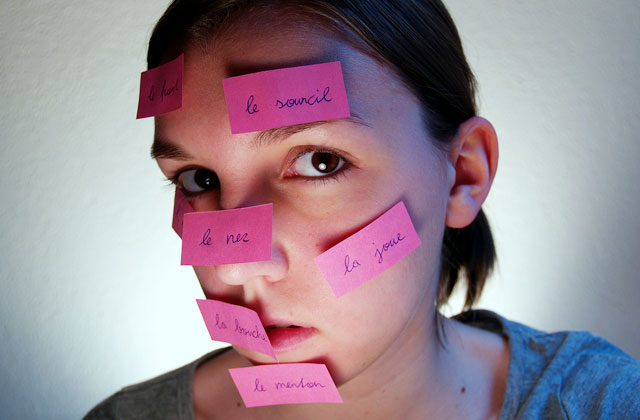 le sourcil
le nez
la joue
la bouche
le menton